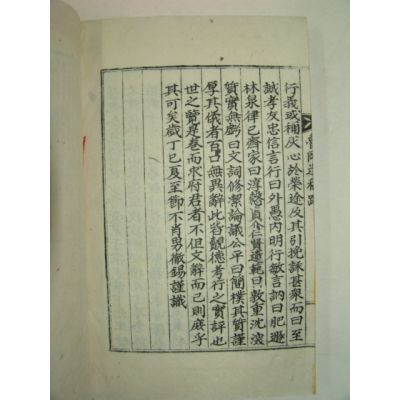 行義或補仄心於榮途及其引挽詠甚衆而曰至
誠孝友忠信言行曰外愚內明行敏言訥曰肥遯
林泉律己齊家曰淳慤貞介仁賢遺範曰敦重沈深
質實無虧曰文詞修潔論議公平曰簡樸其質謹
厚其儀者百口無異辭此皆觀德考行之實評也
世之覽是卷而求府君者不但文辭而已則庶乎
其可矣歲丁巳夏至節不肖男徹錫謹識
遺稿跋